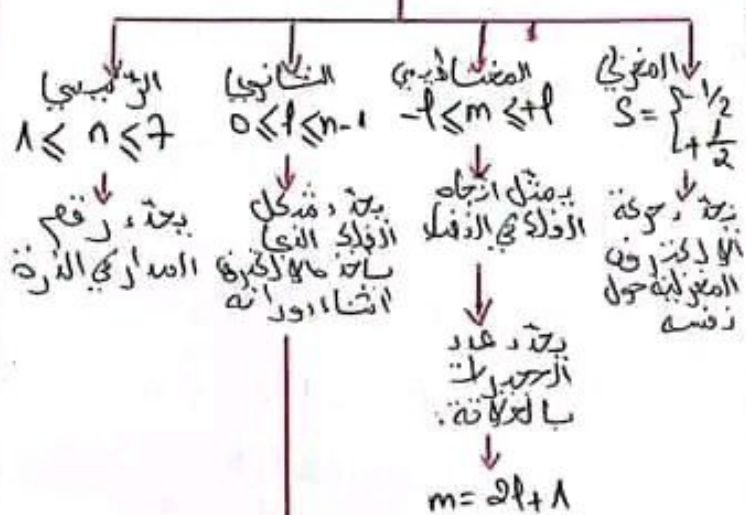 الرئيسي
1 ≤ n ≤ 7
يحدد رقم
المدار في الذرة
الثانوي
0 ≤ l ≤ n-1
يحدد شكل
الفلك الذي
يأخذه الإلكترون
أثناء دورانه
المغناطيسي
-l ≤ m ≤ +l
يمثل اتجاه
الفلك في الفضاء
يحدد عدد
الحجيرات
بالعلاقة.
m = 2l + 1
المغزلي
S = { -1/2
+ 1/2
يحدد حركة
الإلكترون
المغزلية حول
نفسه